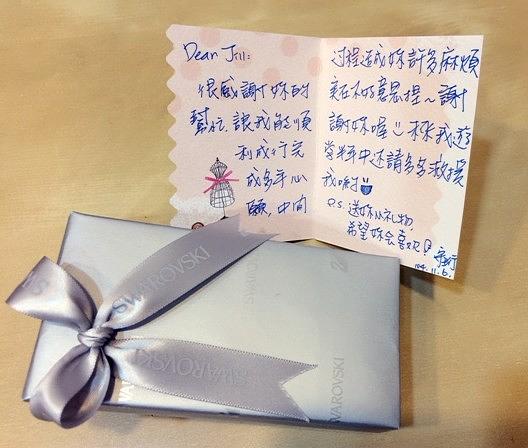 Dear Jill:
很感謝妳的
幫忙,讓我能順
利成行完
成多年心
願,中間
過程造成妳許多麻煩
實在不好意思捏~謝
謝妳喔
當中還請多多救援
我喲
P.S. 送妳小禮物,
希望妳會喜歡!
104.11.6.
SWAROVSKI
SWAROVSKI
SWAROVSKI
SWAROVSKI